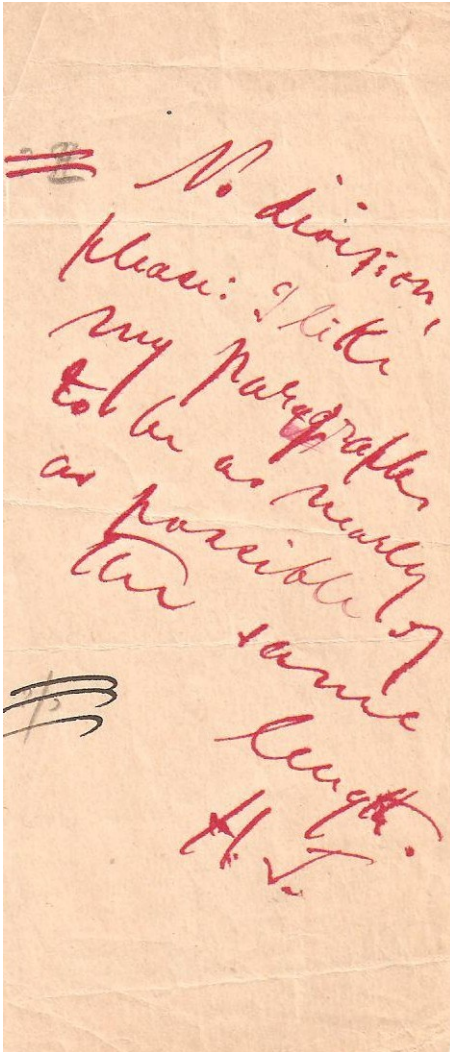 No division,
please: I like
my paragraphs
to be as nearly
as possible of
the same
length.
H. J.